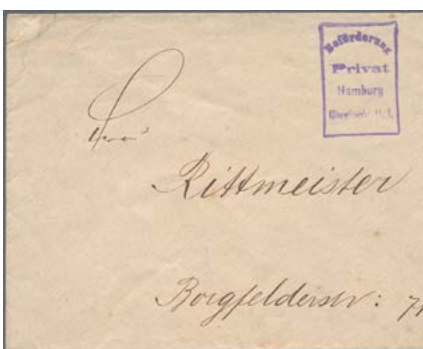 Beförderung
Privat
Hamburg
Herrn
Rittmeister
Borgfelderstr: 71